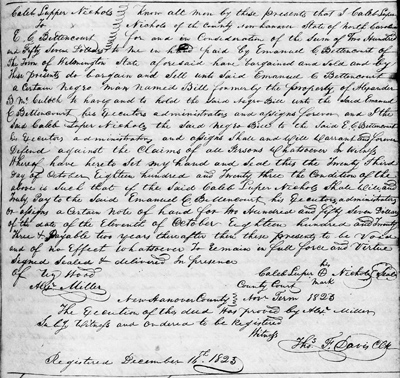 Caleb Tupper Nichols Know all men by these presents that I Caleb Tuper
To Nichols of the County New hanover State of north Carolina
E. C. Bettencourt for and in Consideration of the Sum of Two Hundred
and Fifty Seven Dollars to me in paid by Emanuel C Bettencourt of
The Town of Wilmington State aforesaid have bargained and sold and by
These presents do bargain and Sell unto Said Emanuel C Bettencourt
a Certain Negro man named Bill formerly the property of Alexander
B Mc Culloch to have and to hold the Said Negro Bill unto the Said Emanuel
C Bettencourt his Executors administrators and assigns forever and I the
Said Caleb Tuper Nichols the Said Negro Bill to the Said E C Bettencourt
his Executors administrators and assigns Shall and Will Warrant and forever
Defend against the Claims of all Persons Whatsoever In Witness
Whereof I have hereto Set my hand and Seal this the Twenty Third
Day of October Eighteen hundred and Twenty three the Condition of the
above is Such that if the Said Caleb Tuper Nichols Shall Will and
truly Pay to the Said Emanuel C Bettencourt, his Executors administrators
or assigns a Certain Note of hand for two Hundred and Fifty Seven Dollars
of the date of the Eleventh of October Eighteen hundred and Twenty
Three & Payable two years thereafter then these presents to be Void
and of no Effect Whatsoever To remain in full force and Virtue
Signed Sealed & delivered In presence
of Wood his
Alexr Miller Caleb Tuper Nichols Seal
County Court mark
New Hanover County Nov Term 1823
The Execution of this deed Was proved by Alexr Miller
Witness and ordered to be Registered
Witness
Thos F. Davis Clk
Registered December 16th 1823